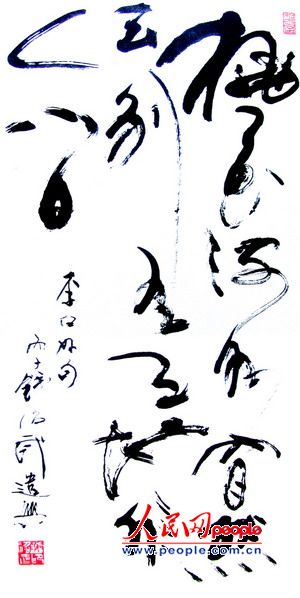 桃花流水窅然
去别有天地非
人间
李白诗句
丙子钱武遣兴
人民网 people
www.people.com.cn